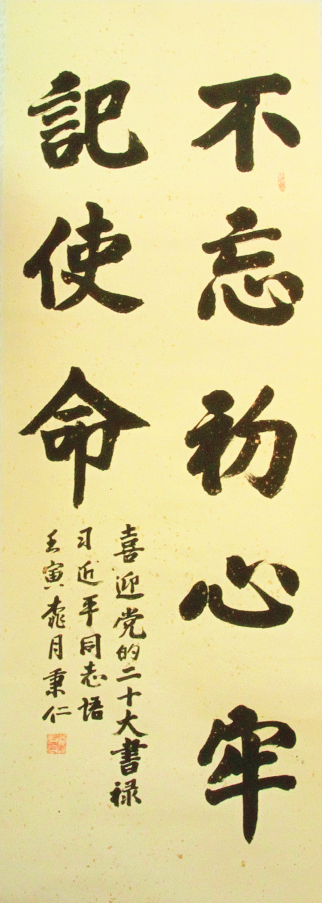 不忘初心牢
記使命
喜迎党的二十大書禄
习近平同志语
壬寅桃月秉仁